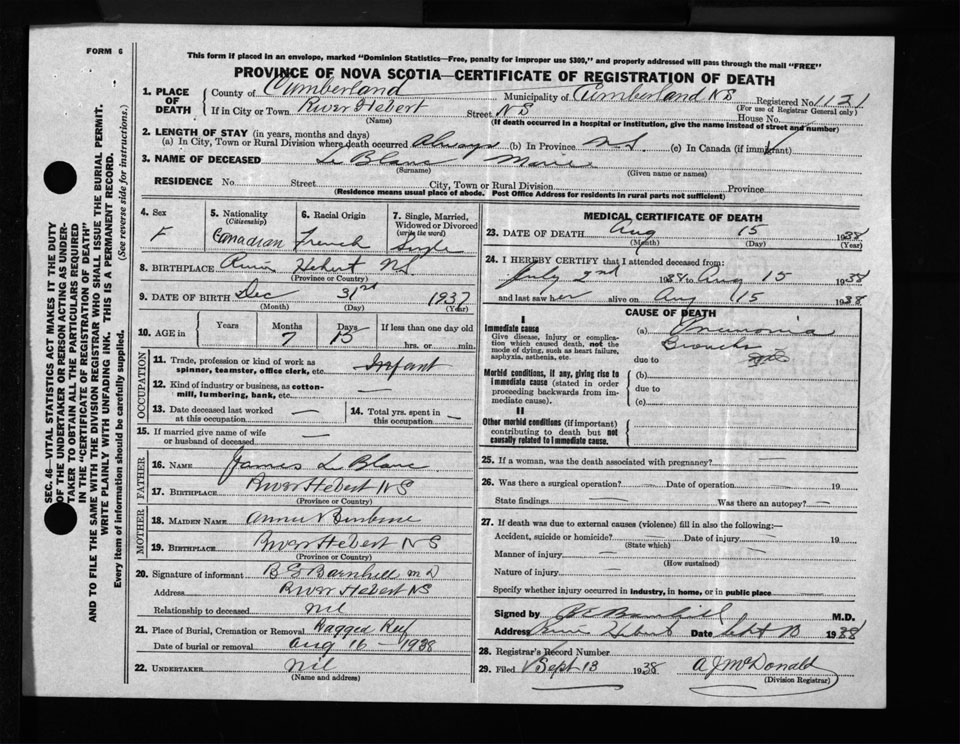 FORM 6
This form if placed in an envelope, marked "Dominion Statistics—Free, penalty for improper use $300," and properly addressed will pass through the mail "FREE"
PROVINCE OF NOVA SCOTIA—CERTIFICATE OF REGISTRATION OF DEATH
1. PLACE OF DEATH
County of Cumberland Municipality of Cumberland NS Registered No. 1121
(For use of Registrar General only)
If in City or Town River Hebert Street NS House No.
(Name)
(If death occurred in a hospital or institution, give the name instead of street and number)
2. LENGTH OF STAY (in years, months and days)
(a) In City, Town or Rural Division where death occurred Always (b) In Province N.S. (c) In Canada (if immigrant)
3. NAME OF DECEASED Le Blanc Marie
(Surname) (Given name or names)
RESIDENCE No. Street City, Town or Rural Division Province
(Residence means usual place of abode. Post Office Address for residents in rural parts not sufficient)
4. Sex F
5. Nationality (Citizenship) Canadian
6. Racial Origin French
7. Single, Married, Widowed or Divorced (write the word) Single
8. BIRTHPLACE River Hebert NS
(Province or Country)
9. DATE OF BIRTH Dec 31st 1937
(Month) (Day) (Year)
10. AGE in Years Months Days If less than one day old
7 15 hrs. or min.
OCCUPATION
11. Trade, profession or kind of work as spinner, teamster, office clerk, etc. Infant
12. Kind of industry or business, as cotton-mill, lumbering, bank, etc. —
13. Date deceased last worked at this occupation —
14. Total yrs. spent in this occupation —
15. If married give name of wife or husband of deceased —
FATHER
16. NAME James Le Blanc
17. BIRTHPLACE River Hebert NS
(Province or Country)
MOTHER
18. MAIDEN NAME Annie
19. BIRTHPLACE River Hebert NS
(Province or Country)
20. Signature of informant B E Barnhill MD
Address River Hebert NS
Relationship to deceased nil
21. Place of Burial, Cremation or Removal Ragged Reef
Date of burial or removal Aug 16 – 1938
22. UNDERTAKER Nil
(Name and address)
MEDICAL CERTIFICATE OF DEATH
23. DATE OF DEATH Aug 15 1938
(Month) (Day) (Year)
24. I HEREBY CERTIFY that I attended deceased from:
July 2nd 1938 to Aug 15 1938
and last saw her alive on Aug 15 1938
CAUSE OF DEATH
I
Immediate cause
Give disease, injury or complication which caused death, not the mode of dying, such as heart failure, asphyxia, asthenia, etc.
(a) Pneumonia
Broncho
due to
Morbid conditions, if any, giving rise to immediate cause (stated in order proceeding backwards from immediate cause).
(b)
due to
(c)
II
Other morbid conditions (if important) contributing to death but not causally related to immediate cause.
25. If a woman, was the death associated with pregnancy? —
26. Was there a surgical operation? — Date of operation — 19
State findings — Was there an autopsy? —
27. If death was due to external causes (violence) fill in also the following:—
Accident, suicide or homicide? — Date of injury — 19
(State which)
Manner of injury —
(How sustained)
Nature of injury —
Specify whether injury occurred in industry, in home, or in public place
Signed by B E Barnhill M.D.
Address River Hebert Date Sept 13 1938
28. Registrar's Record Number
29. Filed Sept 13 1938 A J McDonald
(Division Registrar)
SEC. 46—VITAL STATISTICS ACT MAKES IT THE DUTY
OF THE UNDERTAKER OR PERSON ACTING AS UNDER-
TAKER TO OBTAIN ALL THE PARTICULARS REQUIRED
IN THE "CERTIFICATE OF REGISTRATION OF DEATH"
AND TO FILE THE SAME WITH THE DIVISION REGISTRAR WHO SHALL ISSUE THE BURIAL PERMIT.
WRITE PLAINLY WITH UNFADING INK. THIS IS A PERMANENT RECORD.
Every item of information should be carefully supplied. (See reverse side for instructions.)